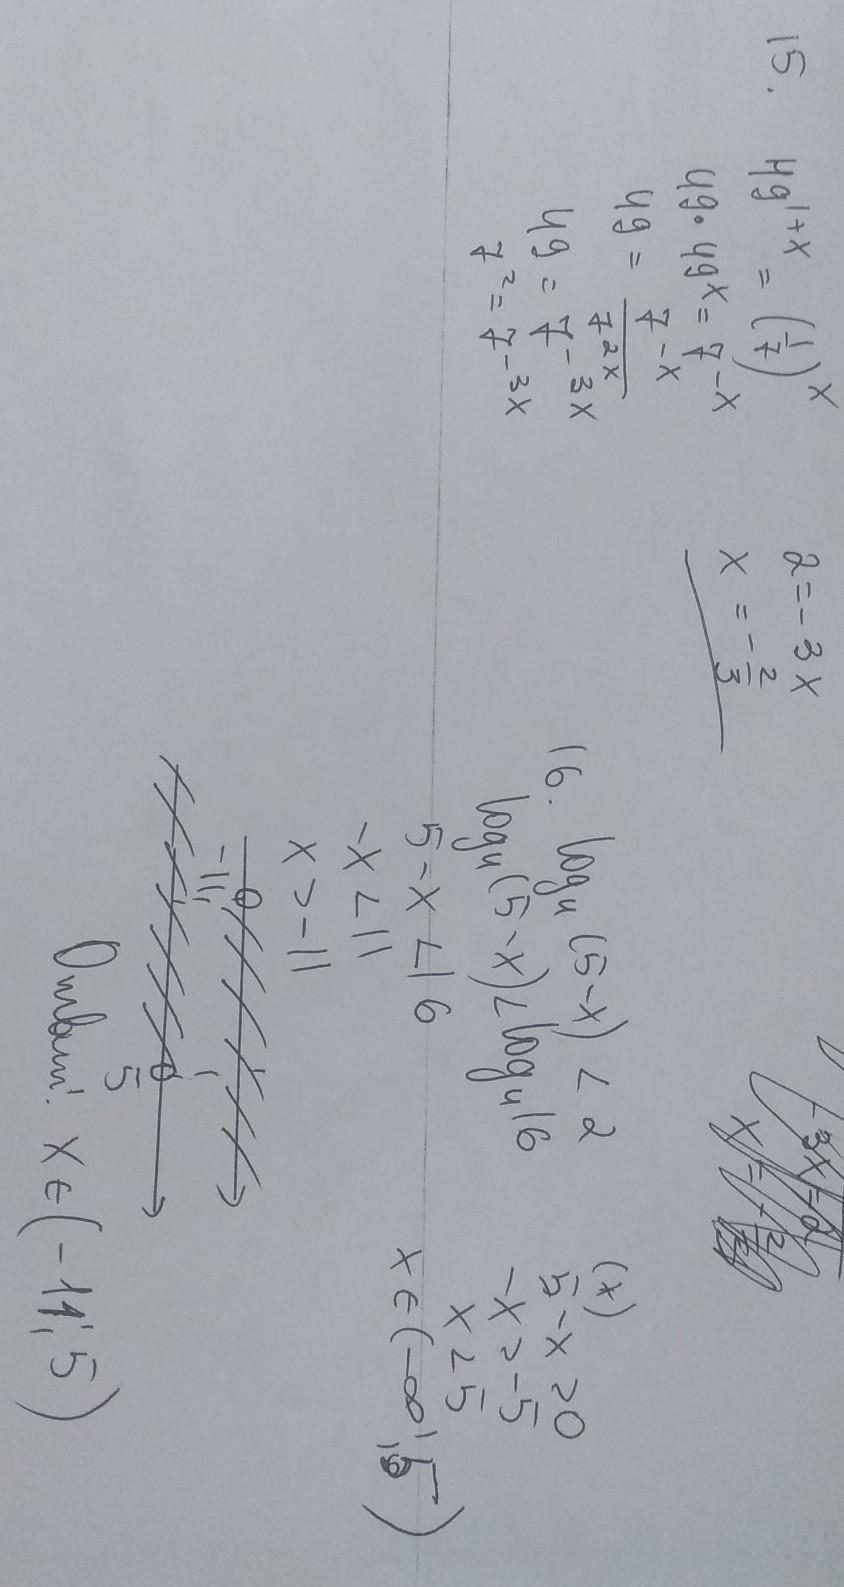 15. 49^{1+x} = (1/7)^x
49 · 49^x = 7^{-x}
49 = 7^{-x} / 7^{2x}
49 = 7^{-3x}
7^2 = 7^{-3x}
2 = -3x
x = -2/3
-3x=2
16. log_4 (5-x) < 2
log_4 (5-x) < log_4 16
5-x < 16
-x < 11
x > -11
(x)
5-x > 0
-x > -5
x < 5
x ∈ (-∞; 5)
-11
5
x ∈ (-11; 5)